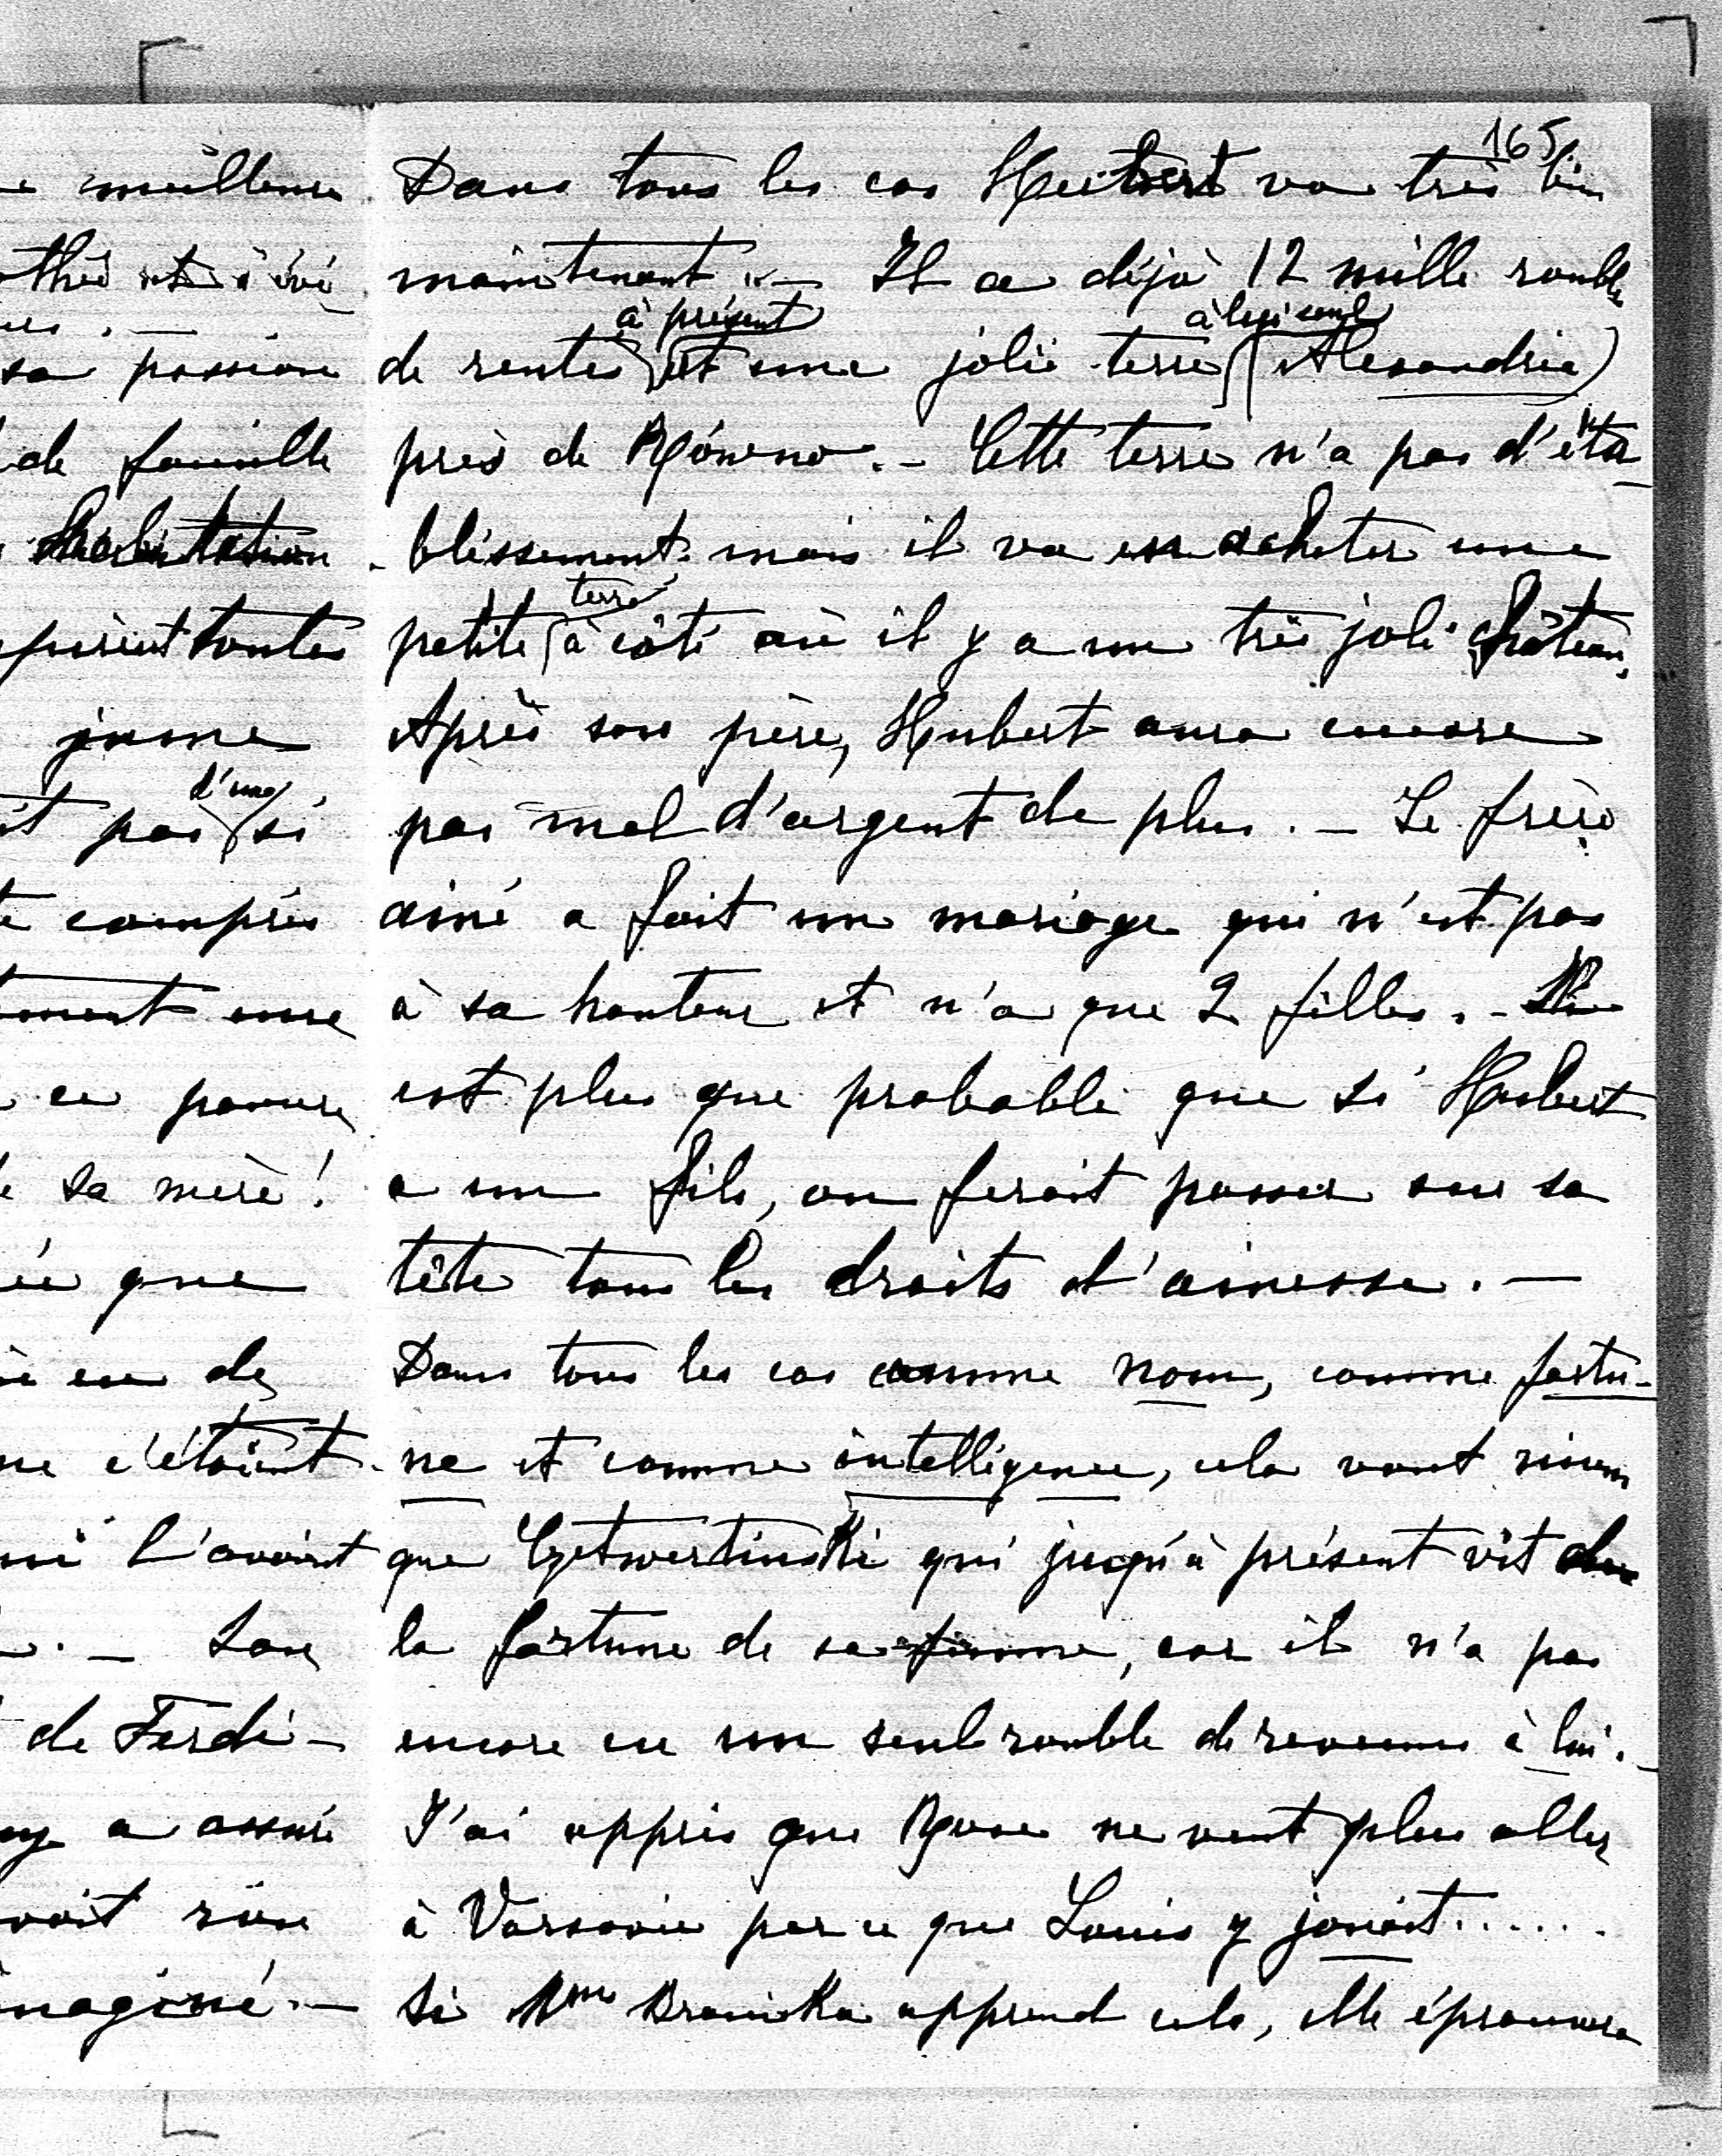 165
Dans tous les cas Hubert va très bien
maintenant. — Il a déjà 12 mille roubles
de rentes à présent et une jolie terre à lui seul (Alexandrie)
près de Równo. — Cette terre n'a pas d'éta-
blissement mais il va en acheter une
petite terre à côté où il y a un très joli château,
Après son père, Hubert aura encore
pas mal d'argent de plus. — Le frère
ainé a fait un mariage qui n'est pas
à sa hauteur et n'a que 2 filles. — Il
est plus que probable que si Hubert
a un fils, on ferait passer sur sa
tête tous les droits d'ainesse. —
Dans tous les cas comme nom, comme fortu-
ne et comme intelligence, cela vaut mieux
que Czetwertinski qui jusqu'à présent vit de
la fortune de sa femme, car il n'a pas
encore eu un seul rouble de revenus à lui. —
J'ai appris que Rose ne veut plus aller
à Varsovie parce que Louis y jouait......
Si Mme Branicka apprend cela, elle éprouvera
meilleure
sa passion
de famille
toutes
jeune
pas d'une si
compris
ment une
ce pauvre
sa mère!
que
en de
c'étaient
l'avaient
. — Sans
de Ferdi-
a assuré
rien
imaginé. —